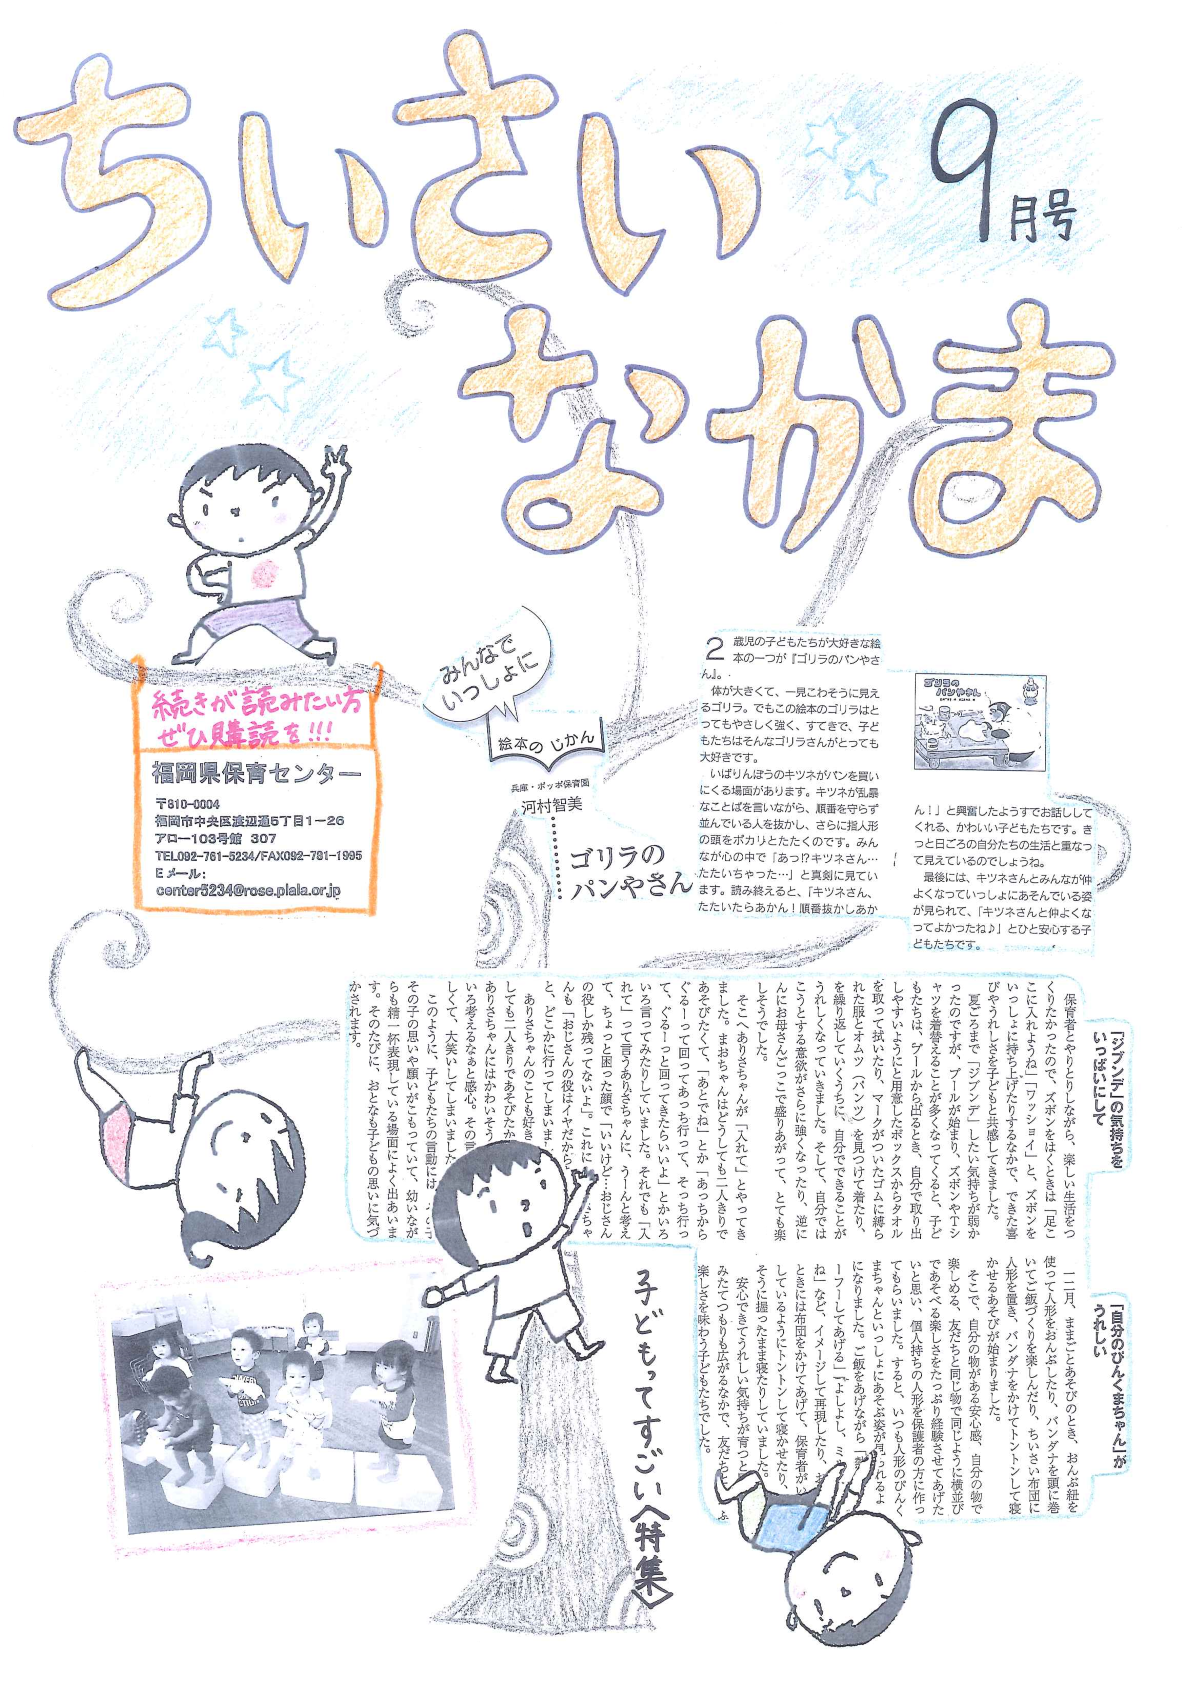 ちいさい
なかま
9月号
続きが読みたい方
ぜひ購読を!!!
福岡県保育センター
〒810-0004
福岡市中央区渡辺通5丁目1-26
アロー103号館 307
TEL092-761-5234/FAX092-781-1995
Eメール:
center5234@rose.plala.or.jp
みんなで
いっしょに
絵本の じかん
兵庫・ポッポ保育園
河村智美
ゴリラの
パンやさん
2歳児の子どもたちが大好きな絵
本の一つが『ゴリラのパンやさ
ん』。
体が大きくて、一見こわそうに見え
るゴリラ。でもこの絵本のゴリラはと
ってもやさしく強く、すてきで、子ど
もたちはそんなゴリラさんがとっても
大好きです。
いばりんぼうのキツネがパンを買い
にくる場面があります。キツネが乱暴
なことばを言いながら、順番を守らず
並んでいる人を抜かし、さらに指人形
の頭をポカリとたたくのです。みん
なが心の中で「あっ!?キツネさん…
たたいちゃった…」と真剣に見てい
ます。読み終えると、「キツネさん、
たたいたらあかん！順番抜かしあか
ゴリラの
パンやさん
ん！」と興奮したようすでお話しして
くれる、かわいい子どもたちです。き
っと日ごろの自分たちの生活と重なっ
て見えているのでしょうね。
最後には、キツネさんとみんなが仲
よくなっていっしょにあそんでいる姿
が見られて、「キツネさんと仲よくな
ってよかったね♪」とひと安心する子
どもたちです。
「ジブンデ」の気持ちを
いっぱいにして
保育者とやりとりしながら、楽しい生活をつ
くりたかったので、ズボンをはくときは「足こ
こに入れようね」「ワッショイ」と、ズボンを
いっしょに持ち上げたりするなかで、できた喜
びやうれしさを子どもと共感してきました。
夏ごろまで「ジブンデ」したい気持ちが弱か
ったのですが、プールが始まり、ズボンやTシ
ャツを着替えることが多くなってくると、子ど
もたちは、プールから出るとき、自分で取り出
しやすいようにと用意したボックスからタオル
を取って拭いたり、マークがついたゴムに縛ら
れた服とオムツ(パンツ)を見つけて着たり、
を繰り返していくうちに、自分でできることが
うれしくなっていきました。そして、自分では
こうとする意欲がさらに強くなったり、逆に
んにお母さんごっこで盛りあがって、とても楽
しそうでした。
そこへありさちゃんが「入れて」とやってき
ました。まおちゃんはどうしても二人きりで
あそびたくて、「あとでね」とか「あっちから
ぐるーって回ってあっち行って、そっち行っ
て、ぐるーっと回ってきたらいいよ」とかいろ
いろ言ってみたりしていました。それでも「入
れて」って言うありさちゃんに、うーんと考え
て、ちょっと困った顔で「いいけど…おじさん
の役しか残ってないよ」。これに
んも「おじさんの役はイヤだから
と、どこかに行ってしまいま
ありさちゃんのことも好き
しても二人きりであそびたか
ありさちゃんにはかわいそう
いろ考えるなぁと感心。その言
しくて、大笑いしてしまいました
このように、子どもたちの言動には、
その子の思いや願いがこもっていて、幼いなが
らも精一杯表現している場面によく出あいま
す。そのたびに、おとなも子どもの思いに気づ
かされます。
「自分のぴんくまちゃん」が
うれしい
一二月、ままごとあそびのとき、おんぶ紐を
使って人形をおんぶしたり、バンダナを頭に巻
いてご飯づくりを楽しんだり、ちいさい布団に
人形を置き、バンダナをかけてトントンして寝
かせるあそびが始まりました。
そこで、自分の物がある安心感、自分の物で
楽しめる、友だちと同じ物で同じように横並び
であそべる楽しさをたっぷり経験させてあげた
いと思い、個人持ちの人形を保護者の方に作っ
てもらいました。すると、いつも人形のぴんく
まちゃんといっしょにあそぶ姿が見られるよ
になりました。ご飯をあげながら
ーフーしてあげる」「よしよし、ミ
ね」など、イメージして再現したり、お
ときには布団をかけてあげて、保育者がい
しているようにトントンして寝かせたり、
そうに握ったまま寝たりしていました。
安心できてうれしい気持ちが育つと
みたてつもりも広がるなかで、友だち
楽しさを味わう子どもたちでした。
子どもってすごい〈特集〉